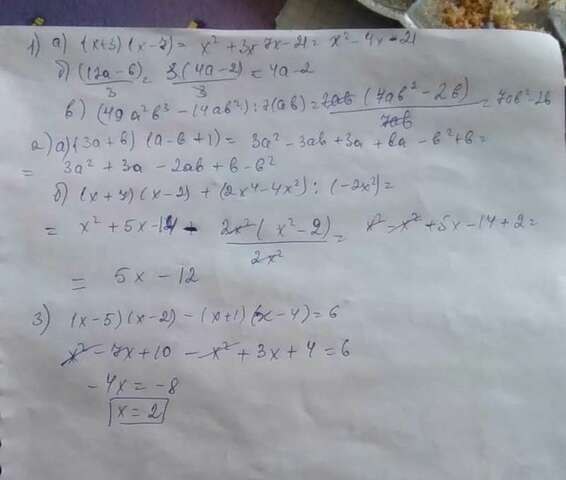 1) а) (x+3)(x-7) = x² + 3x 7x - 21 = x² - 4x - 21
б) (12a-6)/3 = 3(4a-2)/3 = 4a-2
в) (49a²в³ - 14aв²) : 7(aв) = 7aв(7aв² - 2в)/7aв = 7aв² - 2в
2) а) (3a+в)(a-в+1) = 3a² - 3aв + 3a + вa - в² + в =
= 3a² + 3a - 2aв + в - в²
б) (x+7)(x-2) + (2x⁴ - 4x²) : (-2x²) =
= x² + 5x - 14 - 2x²(x²-2)/2x² = x² - x² + 5x - 14 + 2 =
= 5x - 12
3) (x-5)(x-2) - (x+1)(x-4) = 6
x² - 7x + 10 - x² + 3x + 4 = 6
-4x = -8
x = 2